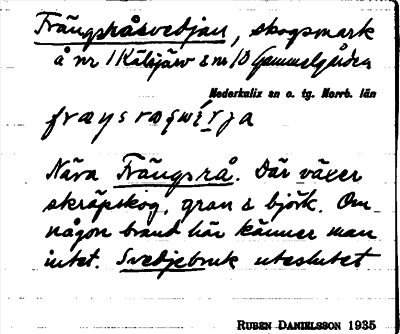 Trängsråsvedjan, skogsmark
å nr 1 Kälsjärv & nr 10 Gammelgården
Nederkalix sn o. tg. Norrb. län
Nära Trängsrå. Där växer
skräpskog, gran & björk. Om
någon brand här känner man
intet. Svedjebruk uteslutet
RUBEN DANIELSSON 1935